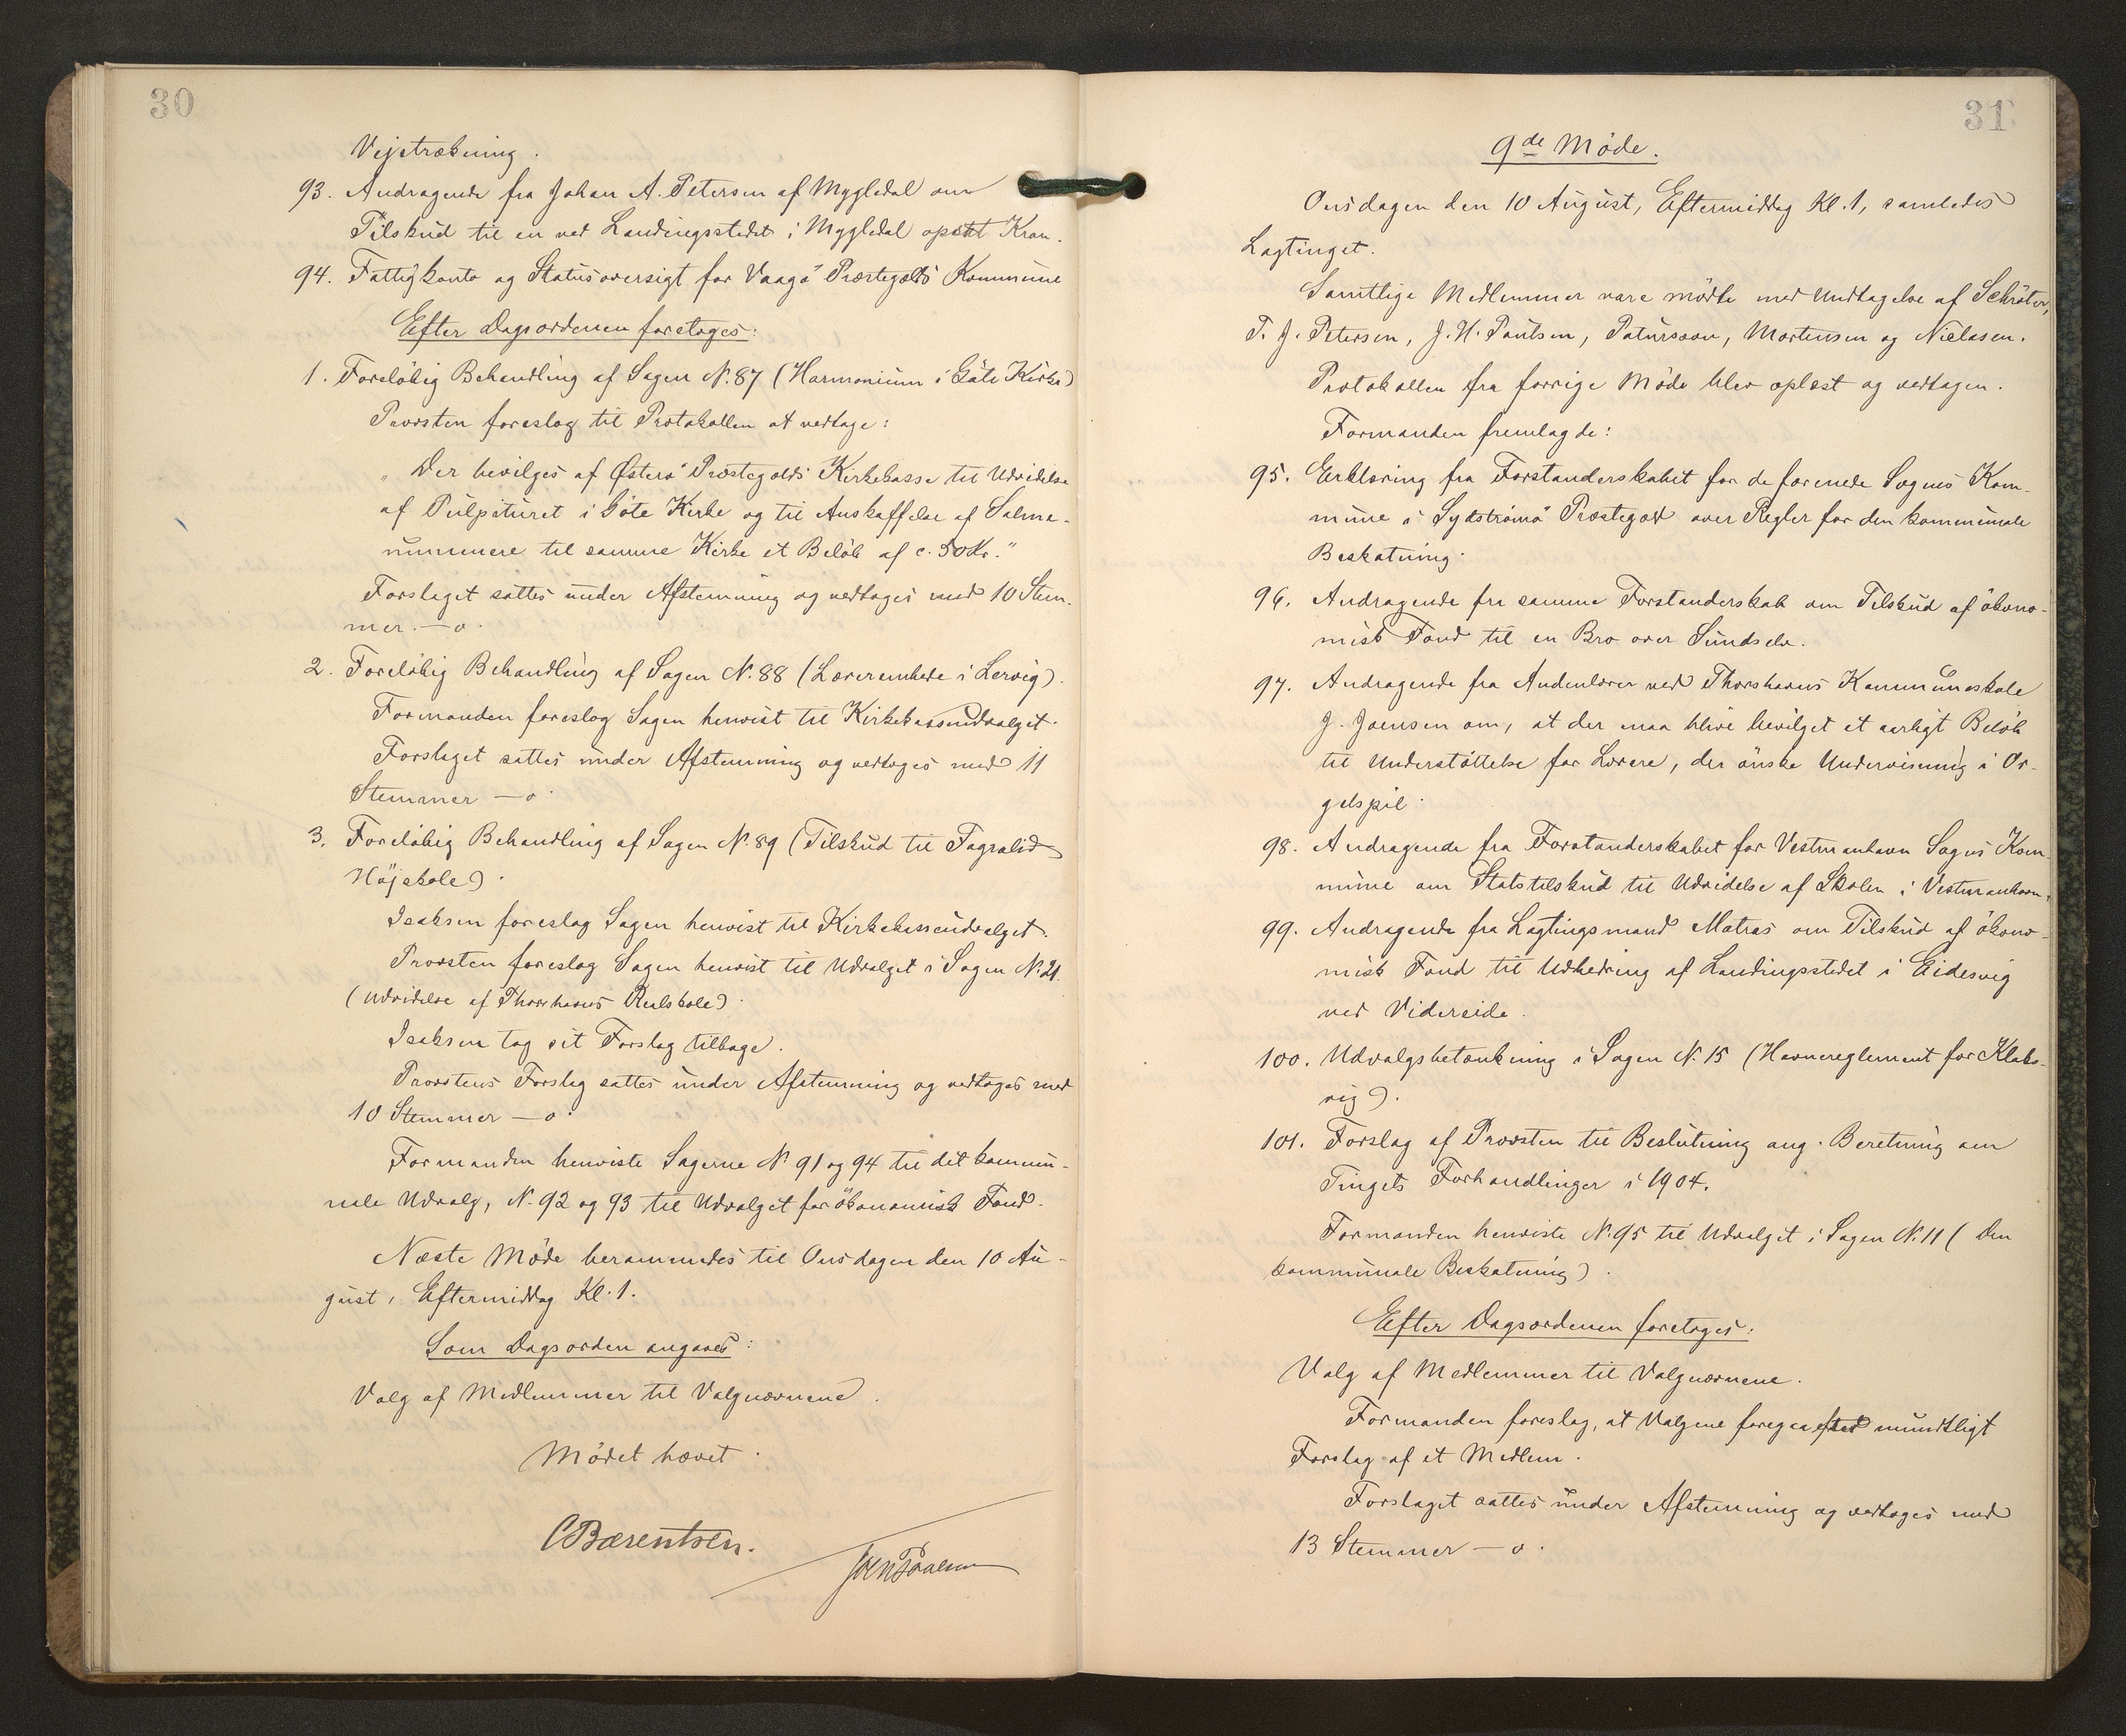 30
Vejstrækning.
93. Andragende fra Johan A. Petersen af Mygledal om
Tilskud til en ved Landingsstedet i Mygledal opsat Kran.
94. Fattigkonto og Statusoversigt for Vaagø Præstegjelds Kommune
Efter Dagsordenen foretoges:
1. Foreløbig Behandling af Sagen N. 87 (Harmonium i Gøte Kirke)
Provsten foreslog til Protokollen at vedtage:
"Der bevilges af Østerø Præstegjelds Kirkekasse til Udvidelse
af Pulpituret i Gøte Kirke og til Anskaffelse af Salme-
nummere til samme Kirke et Beløb af c. 50 Kr."
Forslaget sattes under Afstemning og vedtoges med 10 Stem-
mer. — o.
2. Foreløbig Behandling af Sagen N. 88 (Lærerembede i Lervig).
Formanden foreslog Sagen henvist til Kirkekasseudvalget.
Forslaget sattes under Afstemning og vedtoges med 11
Stemmer — o.
3. Foreløbig Behandling af Sagen N. 89 (Tilskud til Fagralid
Højskole).
Isaksen foreslog Sagen henvist til Kirkekasseudvalget.
Provsten foreslog Sagen henvist til Udvalget i Sagen N. 21.
(Udvidelse af Thorshavns Realskole).
Isaksen tog sit Forslag tilbage.
Provstens Forslag sattes under Afstemning og vedtoges med
10 Stemmer — o.
Formanden henviste Sagerne N. 91 og 94 til det kommu-
nale Udvalg, N. 92 og 93 til Udvalget for økonomisk Fond.
Næste Møde berammedes til Onsdagen den 10 Au-
gust, Eftermiddag Kl. 1.
Som Dagsorden angaves:
Valg af Medlemmer til Valgnævnene.
Mødet hævet.
CBærentsen.
31
9de Møde.
Onsdagen den 10 August, Eftermiddag Kl. 1, samledes
Lagtinget.
Samtlige Medlemmer vare mødte med Undtagelse af Schrøter,
T. J. Petersen, J. H. Poulsen, Patursson, Mortensen og Niclasen.
Protokollen fra forrige Møde blev oplæst og vedtagen.
Formanden fremlagde:
95. Erklæring fra Forstanderskabet for de forenede Sognes Kom-
mune i Sydstrømø Præstegjæld over Regler for den kommunale
Beskatning.
96. Andragende fra samme Forstanderskab om Tilskud af økono-
misk Fond til en Bro over Sundselv.
97. Andragende fra Andenlærer ved Thorshavns Kommuneskole
J. Joensen om, at der maa blive bevilget et aarligt Beløb
til Understøttelse for Lærere, der ønske Undervisning i Or-
gelspil.
98. Andragende fra Forstanderskabet for Vestmanhavn Sogns Kom-
mune om Statstilskud til Udvidelse af Skolen i Vestmanhavn.
99. Andragende fra Lagtingsmand Matras om Tilskud af økono-
misk Fond til Udbedring af Landingsstedet i Eidesvig
ved Videreide.
100. Udvalgsbetænkning i Sagen N. 15 (Havnereglement for Klaks-
vig).
101. Forslag af Provsten til Beslutning ang. Beretning om
Tingets Forhandlinger i 1904.
Formanden henviste N. 95 til Udvalget i Sagen N. 11 (Den
kommunale Beskatning).
Efter Dagsordenen foretoges:
Valg af Medlemmer til Valgnævnene.
Formanden foreslog, at Valgene foregaa efter mundtligt
Forslag af et Medlem.
Forslaget sattes under Afstemning og vedtoges med
13 Stemmer — o.